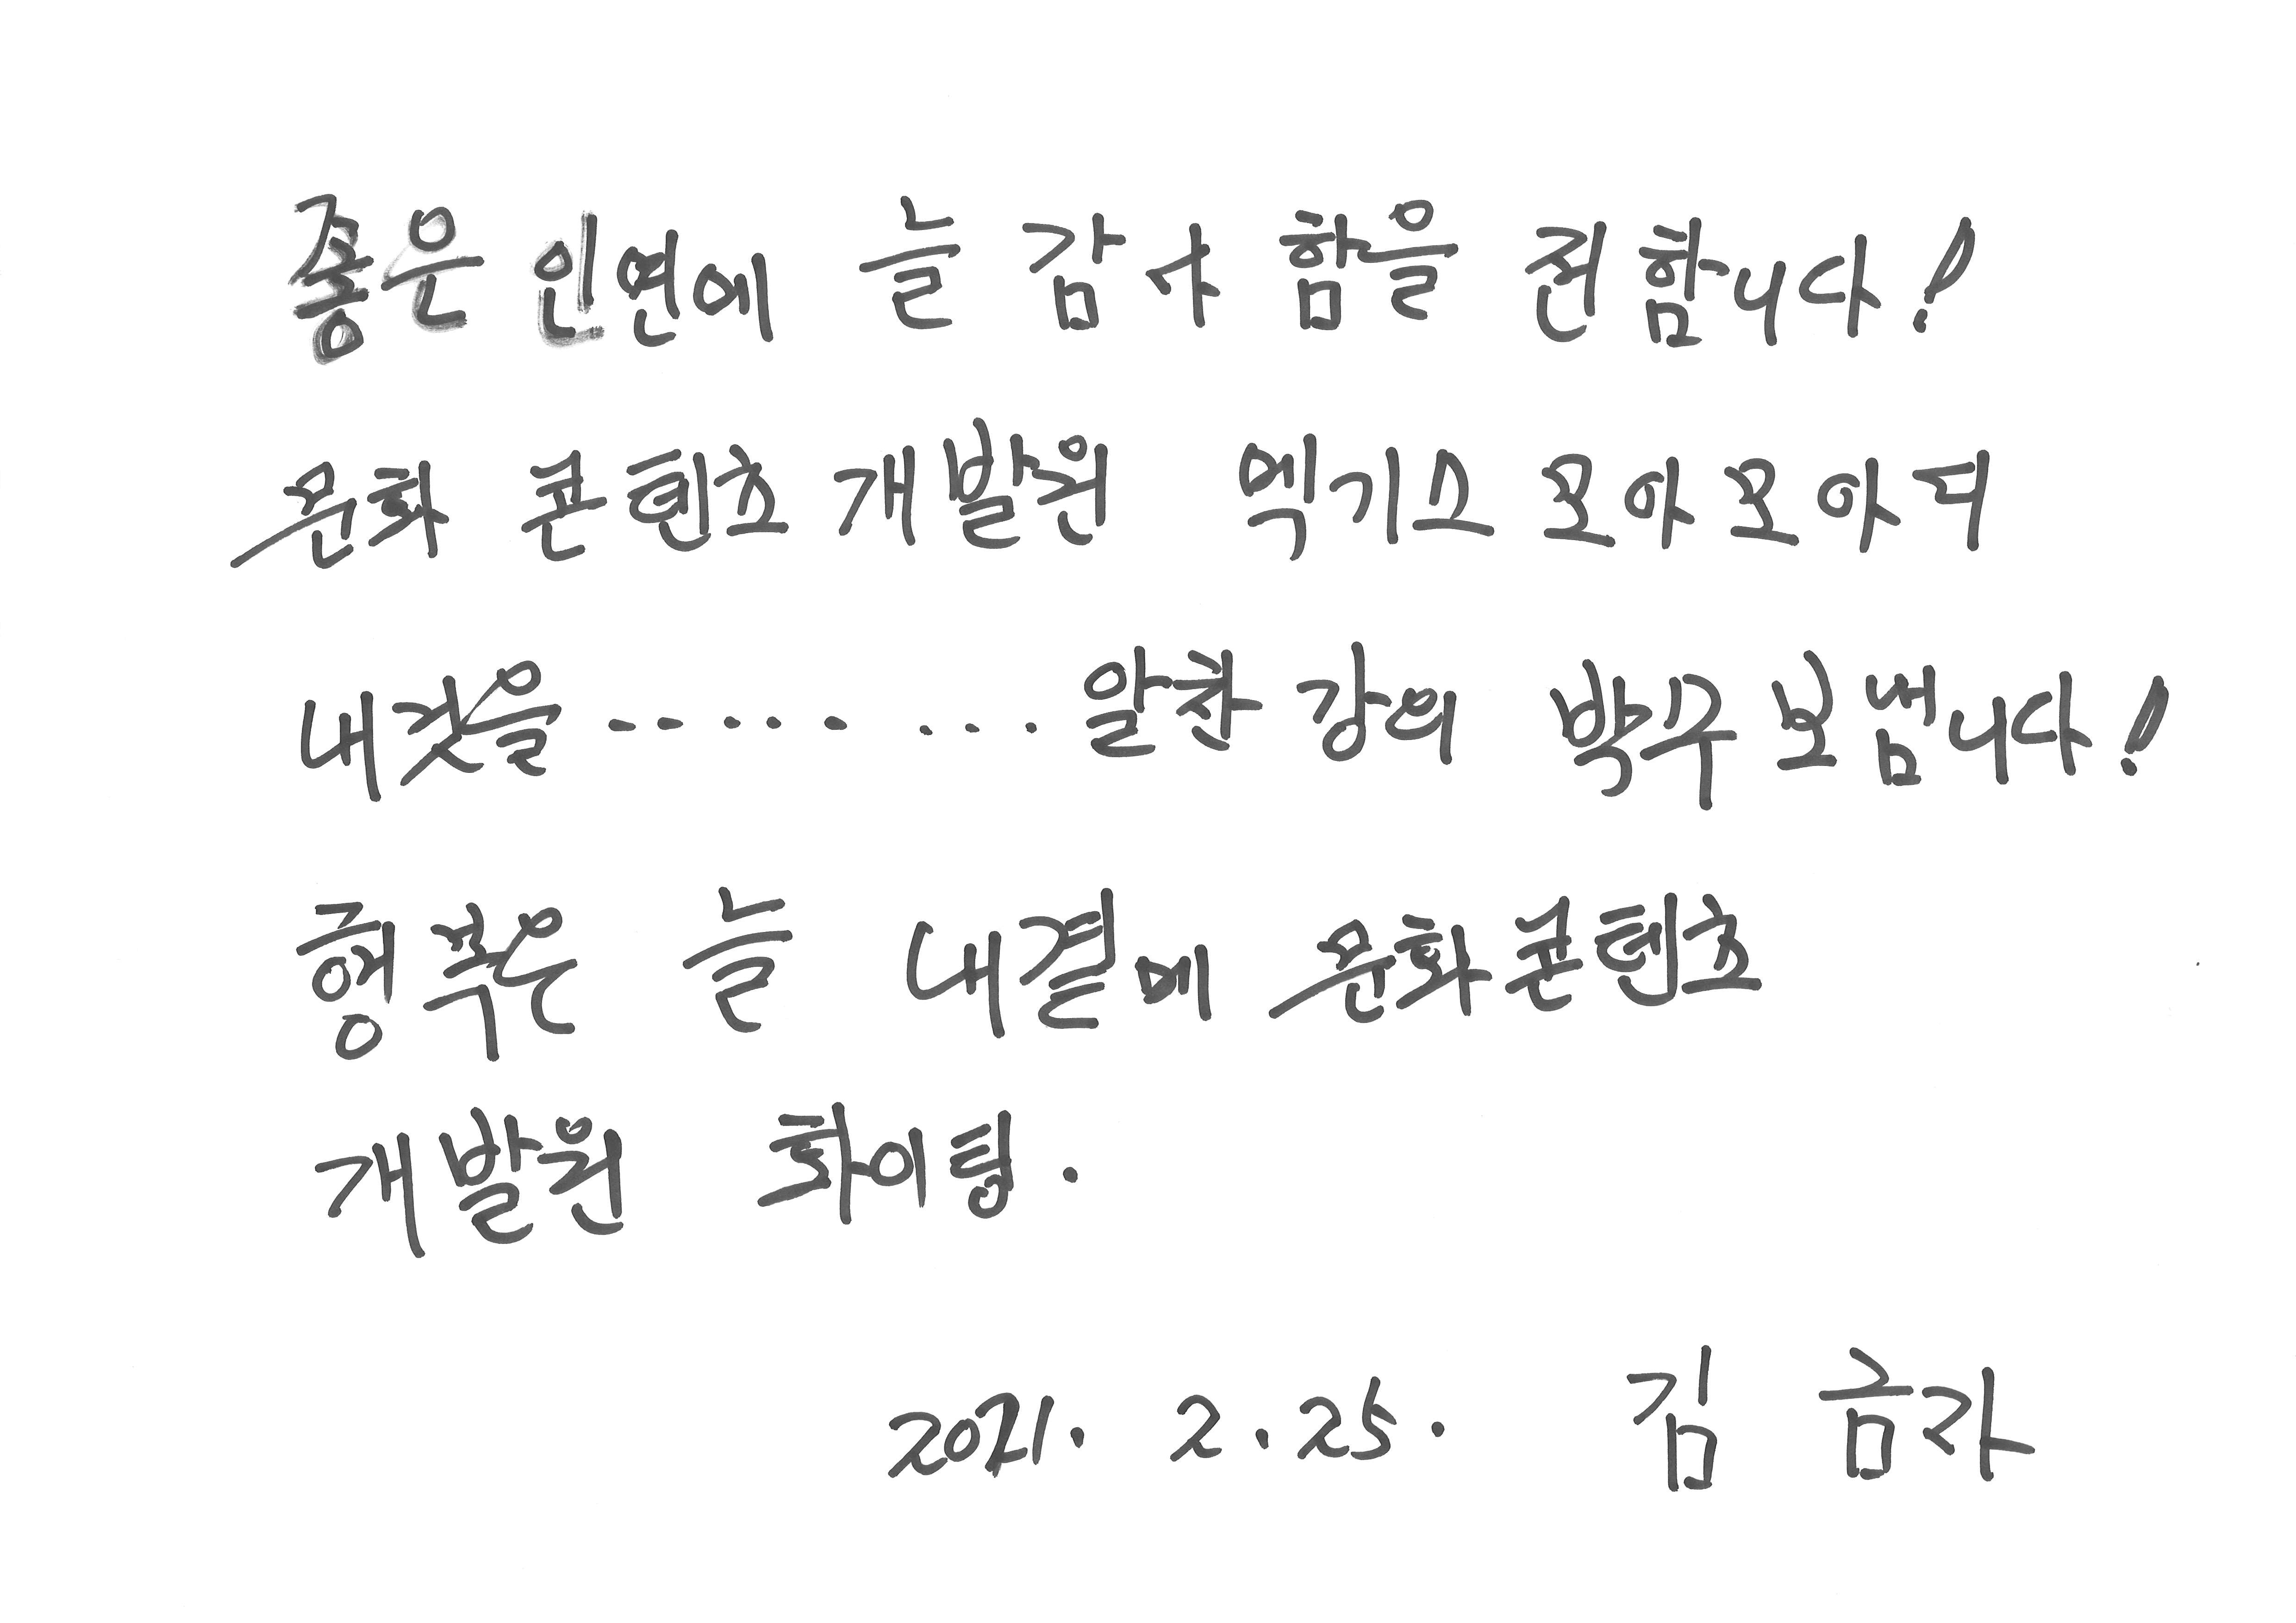 좋은 인연에 늘 감사함을 전합니다!
문화 콘텐츠 개발원 엑기스 모아모아서
내것을 ·········· 알찬 강의 박수 보냅니다!
행복은 늘 내곁에 문화콘텐츠
개발원 화이팅.
2021. 2. 25. 김 금자